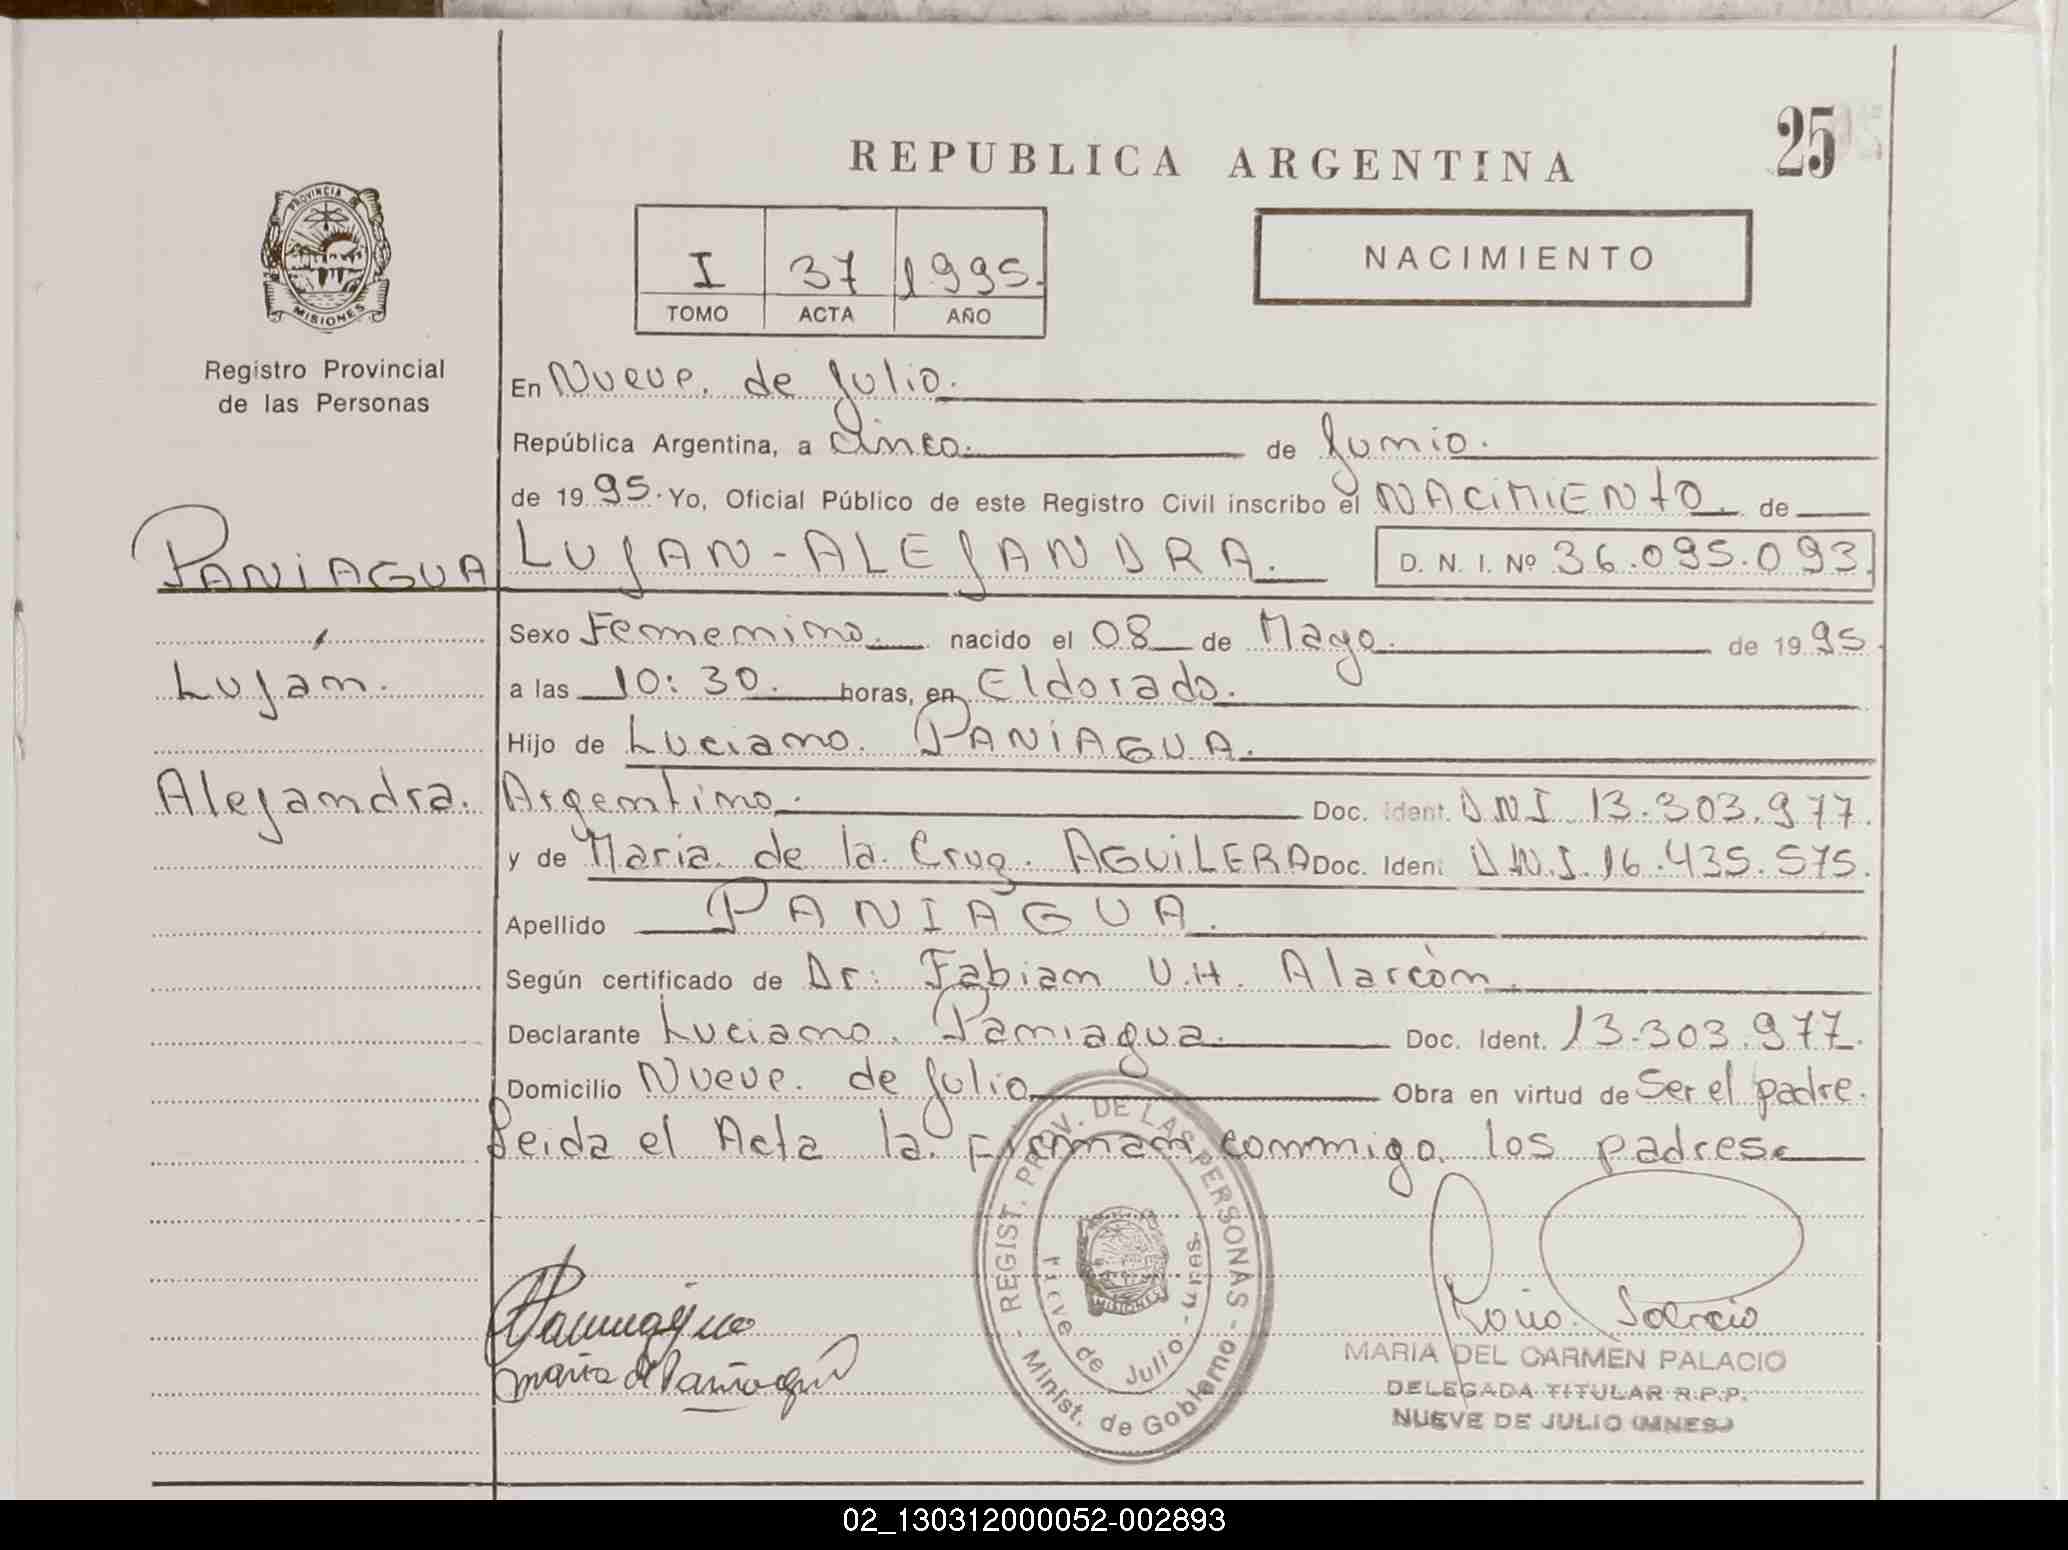 25
REPUBLICA ARGENTINA
PROVINCIA DE
MISIONES
I 37 1995.
TOMO ACTA AÑO
NACIMIENTO
Registro Provincial
de las Personas
En Nueve. de Julio.
República Argentina, a cinco. de Junio.
de 1995. Yo, Oficial Público de este Registro Civil inscribo el NACIMIENTO. de
PANIAGUA LUJAN-ALEJANDRA. D. N. I. Nº 36.095.093.
Sexo Femenino. nacido el 08 de Mayo. de 1995.
Luján. a las 10:30. horas, en Eldorado.
Hijo de Luciano. PANIAGUA.
Alejandra. Argentino. Doc. Ident. DNI 13.303.977.
y de Maria. de la. Cruz. AGUILERA Doc. Ident. D.N.I. 16.435.575.
Apellido PANIAGUA.
Según certificado de Dr: Fabian U.H. Alarcón.
Declarante Luciano. Paniagua. Doc. Ident. 13.303.977.
Domicilio Nueve. de Julio Obra en virtud de Ser el padre.
Leida el Acta la. Firman conmigo. los padres
REGIST. PROV. DE LAS PERSONAS
Nueve de Julio - Mnes.
MISIONES
Minist. de Gobierno
Paniagua
maria d Paniagua
MARIA DEL CARMEN PALACIO
DELEGADA TITULAR R.P.P.
NUEVE DE JULIO (MNES.)
02_130312000052-002893